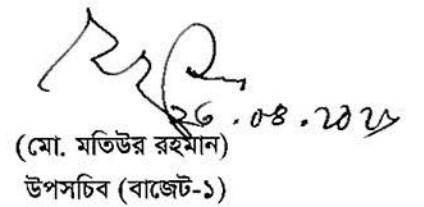 ২৬.০৪.২০২৫
(মো. মতিউর রহমান)
উপসচিব (বাজেট-১)